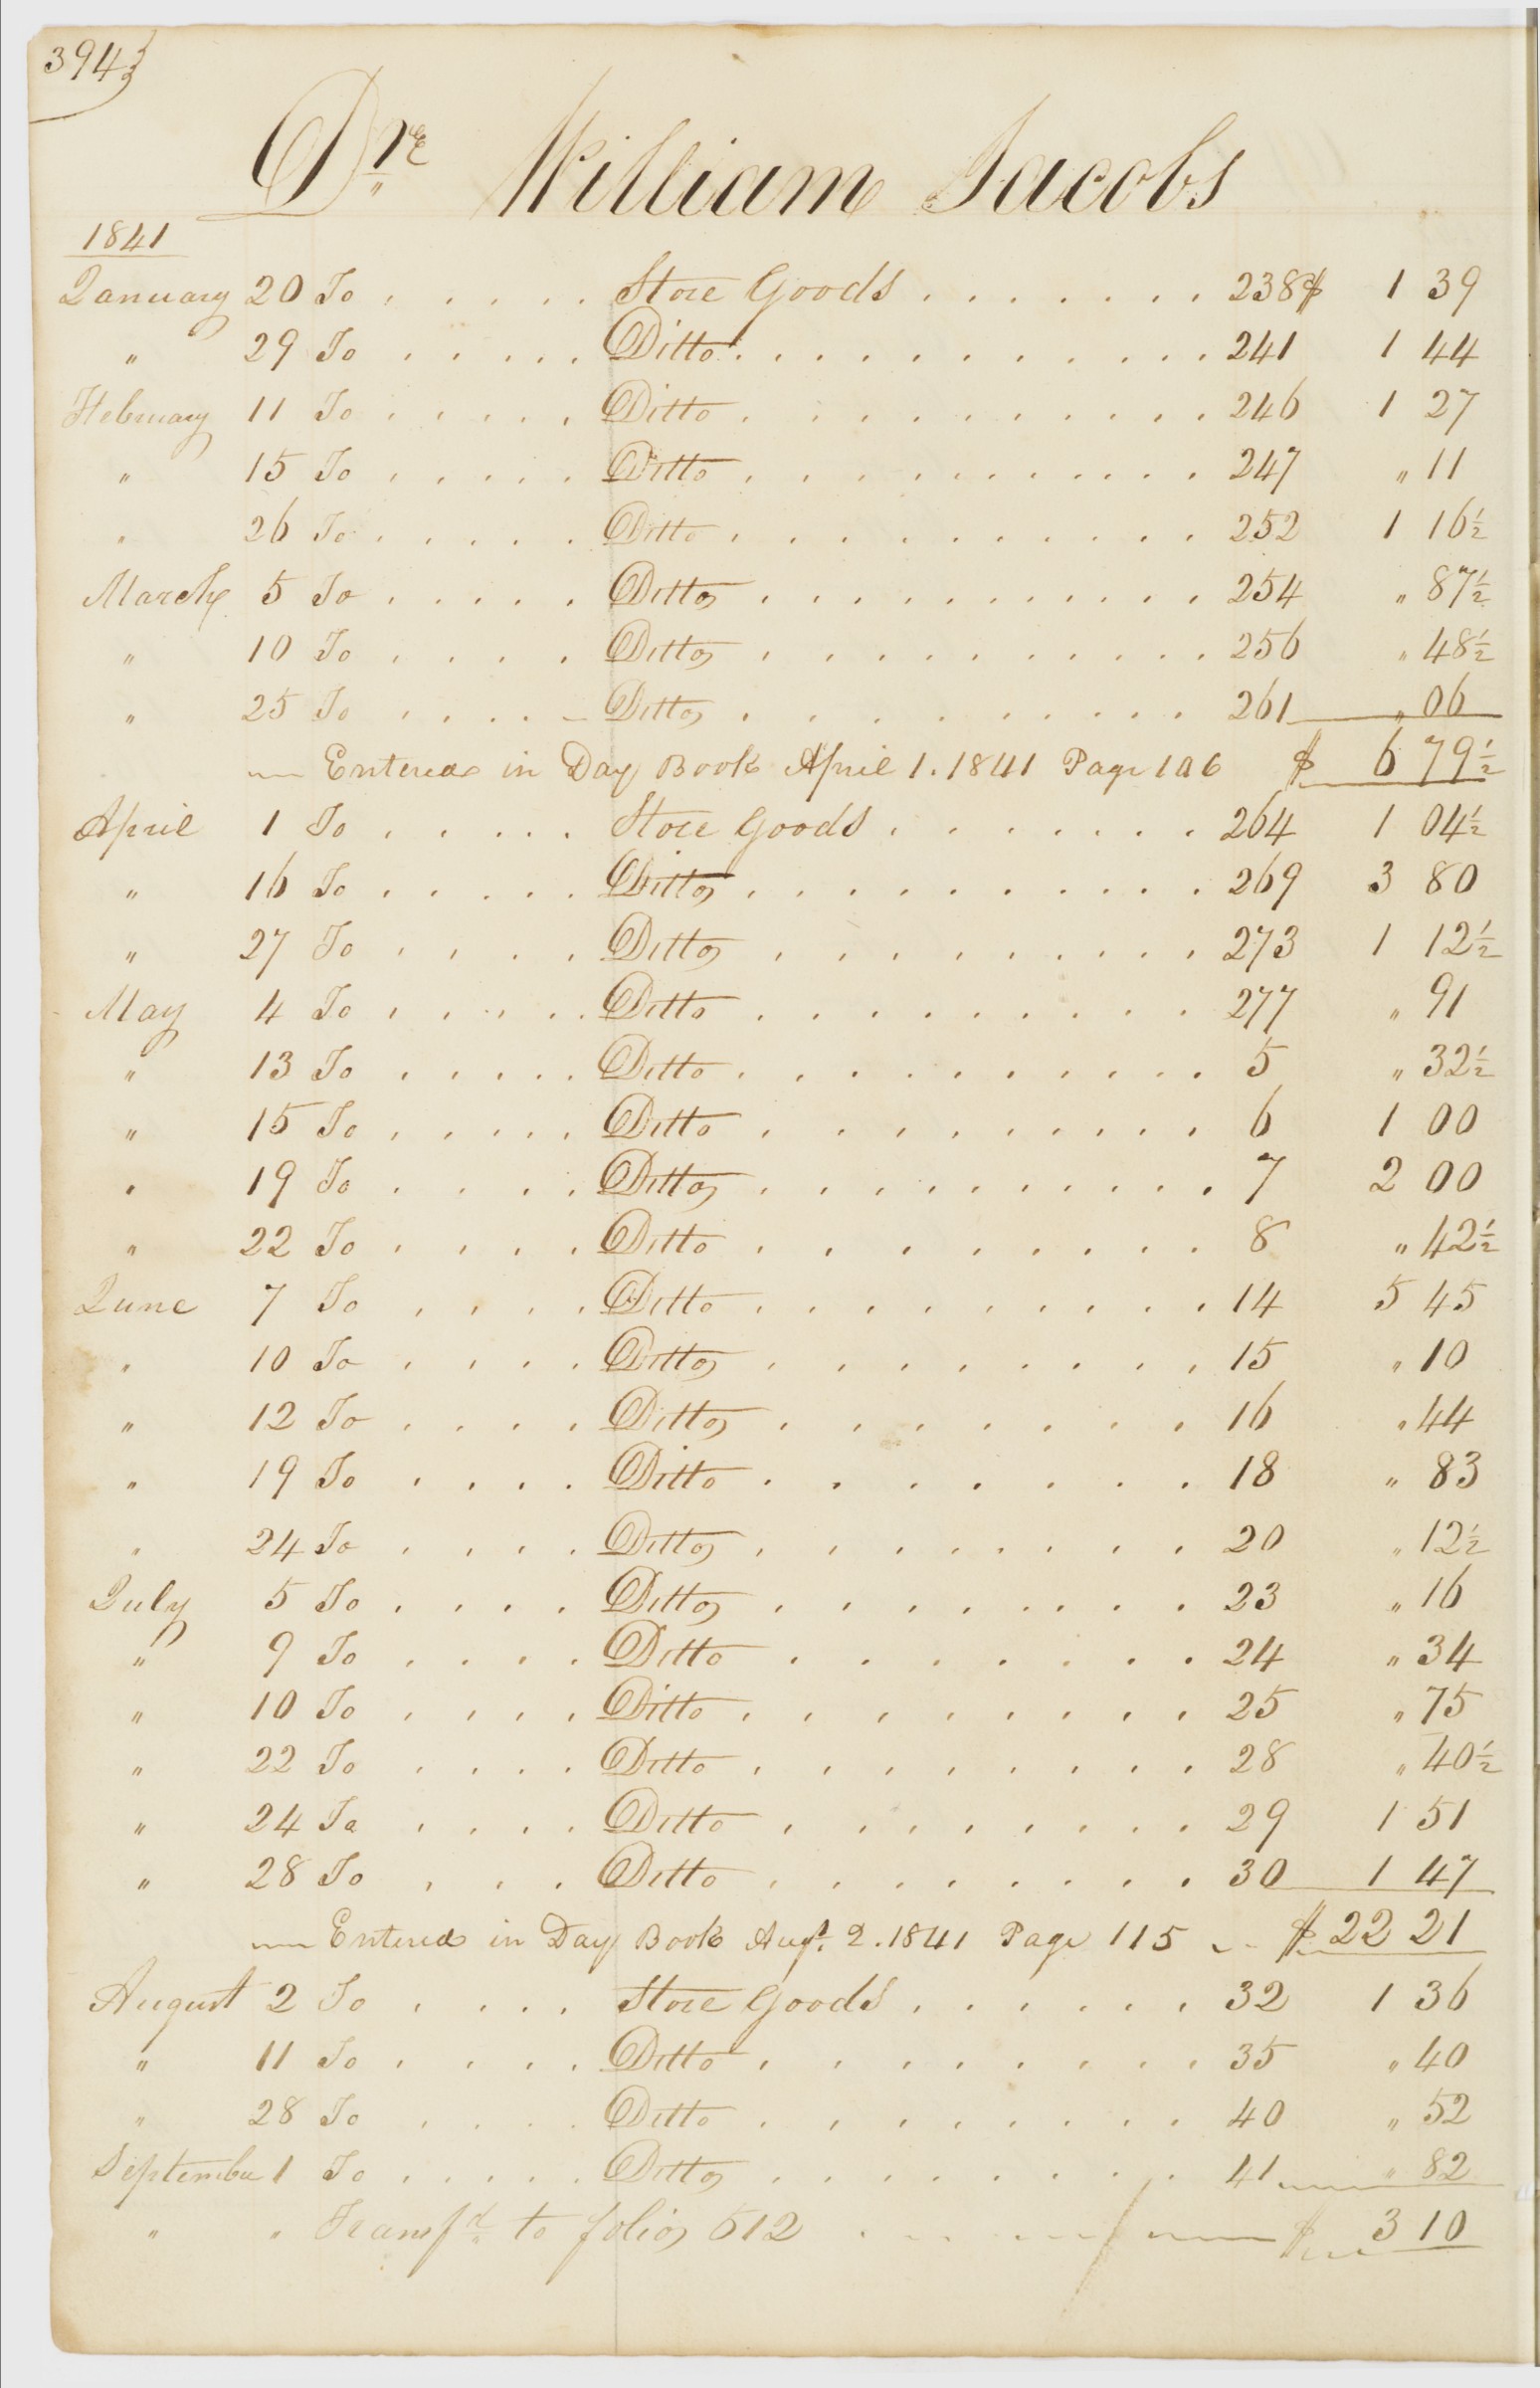 394
Dr William Jacobs
1841
January 20 To . . . . . Store Goods . . . . . . . 238 $ 1 39
" 29 To . . . . . Ditto . . . . . . . . . . 241 1 44
February 11 To . . . . . Ditto . . . . . . . . . . 246 1 27
" 15 To . . . . . Ditto . . . . . . . . . . 247 " 11
" 26 To . . . . . Ditto . . . . . . . . . . 252 1 16½
March 5 To . . . . . Ditto . . . . . . . . . . 254 " 87½
" 10 To . . . . Ditto . . . . . . . . . . 256 " 48½
" 25 To . . . . Ditto . . . . . . . . . 261 " 06
Entered in Day Book April 1. 1841 Page 106 $ 6 79½
April 1 To . . . . . Store Goods . . . . . . . 264 1 04½
" 16 To . . . . . Ditto . . . . . . . . . . 269 3 80
" 27 To . . . . Ditto . . . . . . . . . 273 1 12½
May 4 To . . . . . Ditto . . . . . . . . . 277 " 91
" 13 To . . . . . Ditto . . . . . . . . . . 5 " 32½
" 15 To . . . . . Ditto . . . . . . . . . 6 1 00
" 19 To . . . . Ditto . . . . . . . . . . 7 2 00
" 22 To . . . . Ditto . . . . . . . . . 8 " 42½
June 7 To . . . . Ditto . . . . . . . . . 14 5 45
" 10 To . . . . Ditto . . . . . . . . . 15 " 10
" 12 To . . . . Ditto . . . . . . . . 16 " 44
" 19 To . . . . Ditto . . . . . . . . 18 " 83
" 24 To . . . . Ditto . . . . . . . . 20 " 12½
July 5 To . . . . Ditto . . . . . . . . 23 " 16
" 9 To . . . . Ditto . . . . . . . . 24 " 34
" 10 To . . . . Ditto . . . . . . . . . 25 " 75
" 22 To . . . . Ditto . . . . . . . . . 28 " 40½
" 24 To . . . . Ditto . . . . . . . . 29 1 51
" 28 To . . . Ditto . . . . . . . . 30 1 47
Entered in Day Book Augt. 2. 1841 Page 115 $ 22 21
August 2 To . . . . Store Goods . . . . . . 32 1 36
" 11 To . . . . Ditto . . . . . . . . 35 " 40
" 28 To . . . . Ditto . . . . . . . . 40 " 52
September 1 To . . . . . Ditto . . . . . . . . 41 " 82
" " Transfd to folio 512 $ 3 10